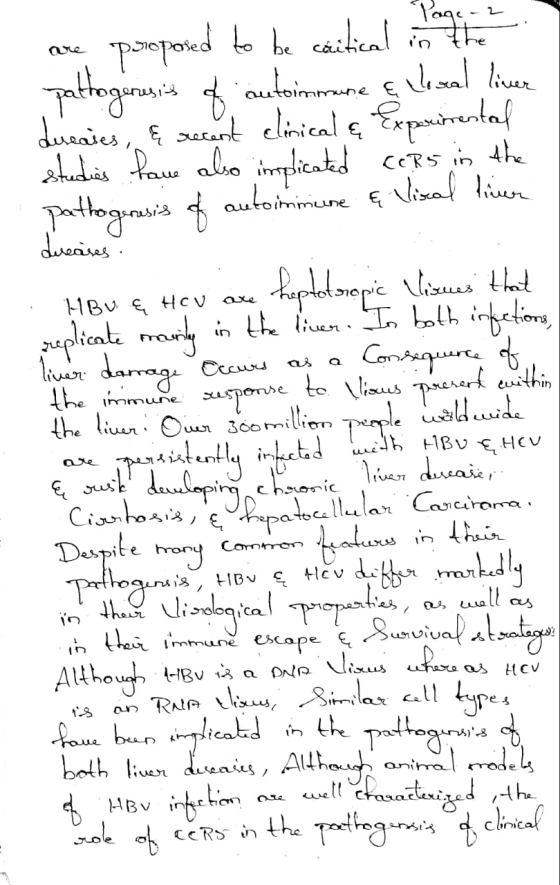 Page - 2
are proposed to be critical in the
pathogenesis of autoimmune & Viral liver
diseases, & recent clinical & Experimental
studies have also implicated CCR5 in the
pathogenesis of autoimmune & Viral liver
diseases.
HBV & HCV are heptotropic Viruses that
replicate mainly in the liver. In both infections,
liver damage Occurs as a Consequence of
the immune response to Virus present within
the liver. Over 300 million people worldwide
are persistently infected with HBV & HCV
& risk developing chronic liver disease,
Cirrhosis, & hepatocellular Carcinoma.
Despite many common features in their
pathogensis, HBV & HCV differ markedly
in their Virological properties, as well as
in their immune escape & Survival strateges.
Although HBV is a DNA Virus where as HCV
is an RNA Virus, Similar cell types
have been implicated in the pathogensis of
both liver diseases, Although animal models
of HBV infection are well characterized, the
role of CCR5 in the pathogensis of clinical